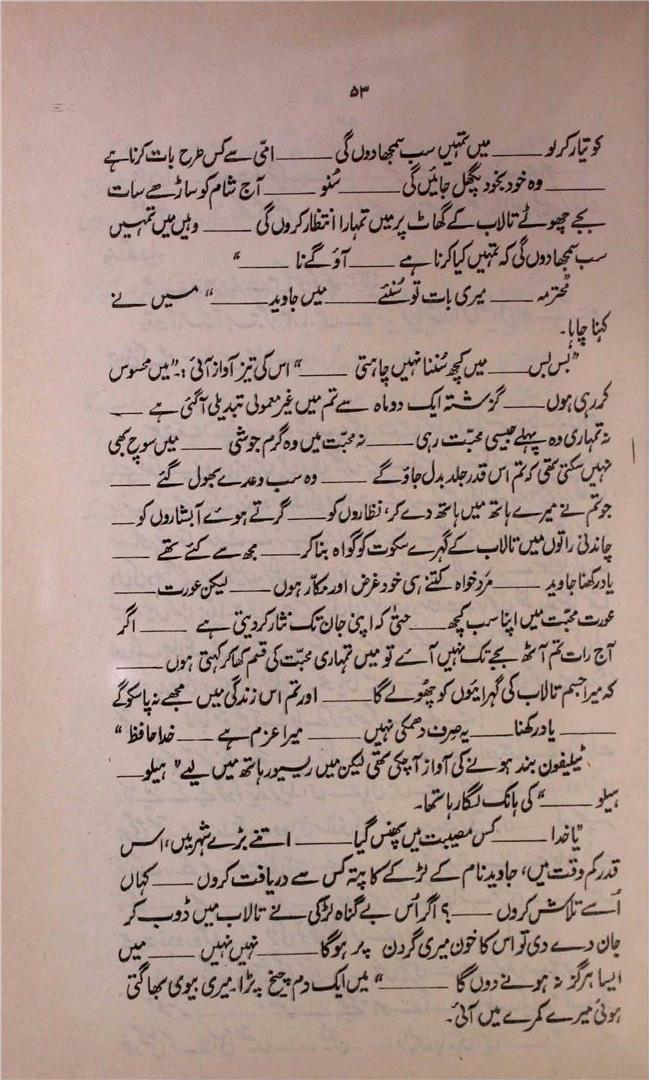 ۵۳
کو تیار کر لو ـــــ میں تمہیں سب سمجھا دوں گی ـــــ امّی سے کس طرح بات کرنا ہے
ـــــ وہ خود بخود پگھل جائیں گی ـــــ سُنو ـــــ آج شام کو ساڑھے سات
بجے چھوٹے تالاب کے گھاٹ پر میں تمہارا انتظار کروں گی ـــــ وہیں میں تمہیں
سب سمجھا دوں گی کہ تمہیں کیا کرنا ہے ـــــ آؤ گے نا ـــــ "
"محترمہ ـــــ میری بات تو سُنئے ـــــ میں جاوید ـــــ" میں نے
کہنا چاہا۔
"بس بس ـــــ میں کچھ سُننا نہیں چاہتی ـــــ" اس کی تیز آواز آئی :۔ "میں محسوس
کر رہی ہوں ـــــ گزشتہ ایک دو ماہ سے تم میں غیر معمولی تبدیلی آ گئی ہے ـــــ
نہ تمہاری وہ پہلے جیسی محبّت رہی ـــــ نہ محبّت میں وہ گرم جوشی ـــــ میں سوچ بھی
نہیں سکتی تھی کہ تم اس قدر جلد بدل جاؤ گے ـــــ وہ سب وعدے بھول گئے ـــــ
جو تم نے میرے ہاتھ میں ہاتھ دے کر، نظاروں کو ـــــ گرتے ہوئے آبشاروں کو ـــــ
چاندنی راتوں میں تالاب کے گہرے سکوت کو گواہ بنا کر ـــــ مجھ سے کئے تھے ـــــ
یاد رکھنا جاوید ـــــ مَرد خواہ کتنے ہی خود غرض اور مکّار ہوں ـــــ لیکن عورت ـــــ
عورت محبّت میں اپنا سب کچھ ـــــ حتیٰ کہ اپنی جان تک نثار کر دیتی ہے ـــــ اگر
آج رات تم آٹھ بجے تک نہیں آئے تو میں تمہاری محبّت کی قسم کھا کر کہتی ہوں ـــــ
کہ میرا جسم تالاب کی گہرائیوں کو چھولے گا ـــــ اور تم اس زندگی میں مجھے نہ پا سکو گے
ـــــ یاد رکھنا ـــــ یہ صِرف دھمکی نہیں ـــــ میرا عزم ہے ـــــ خدا حافظ "
ٹیلیفون بند ہونے کی آواز آ چکی تھی لیکن میں ریسیور ہاتھ میں لیے "ہیلو ـــــ
ہیلو ـــــ" کی ہانک لگا رہا تھا۔
"یا خدا ـــــ کس مصیبت میں پھنس گیا ـــــ اتنے بڑے شہر میں، اس
قدر کم وقت میں، جاوید نام کے لڑکے کا پتہ کس سے دریافت کروں ـــــ کہاں
اُسے تلاش کروں ـــــ ؟ اگر اُس بے گناہ لڑکی نے تالاب میں ڈوب کر
جان دے دی تو اس کا خون میری گردن پر ہوگا ـــــ نہیں نہیں ـــــ میں
ایسا ہرگز نہ ہونے دوں گا ـــــ" میں ایک دم چیخ پڑا۔ میری بیوی بھاگتی
ہوئی میرے کمرے میں آئی۔